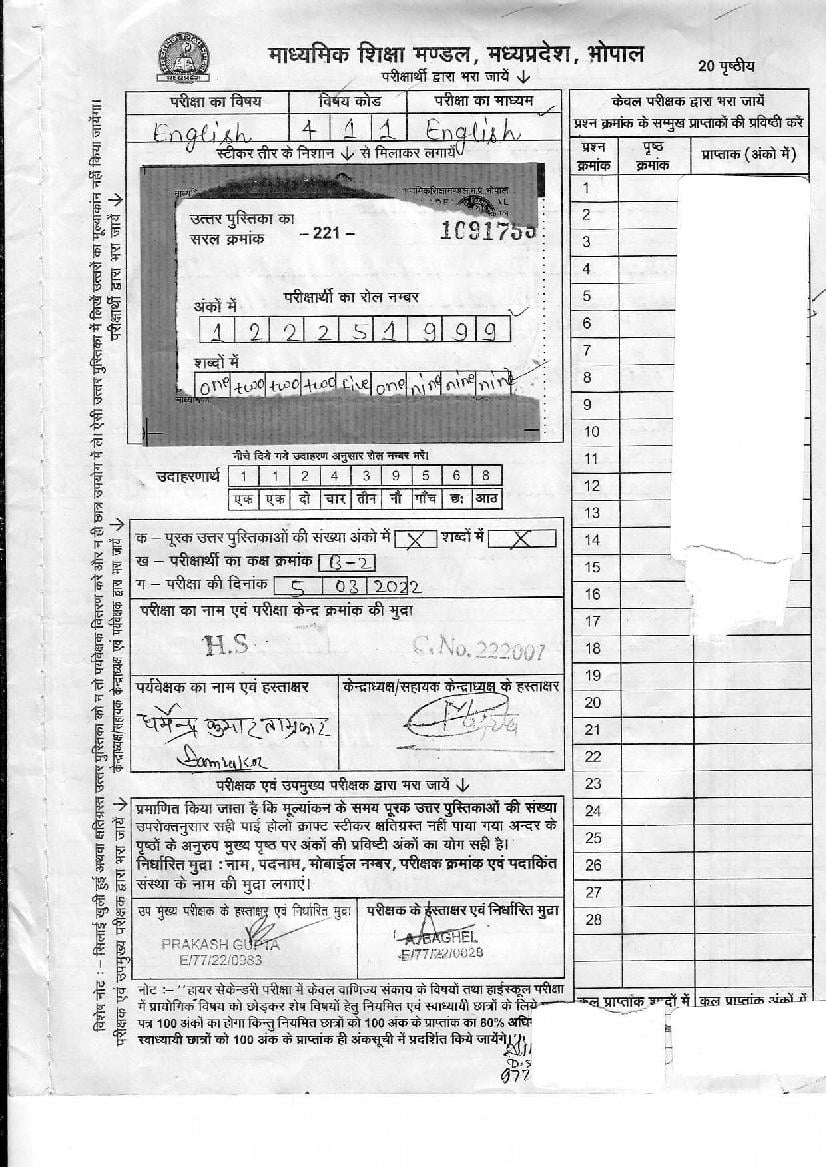 माध्यमिक शिक्षा मण्डल, मध्यप्रदेश, भोपाल
20 पृष्ठीय
परीक्षार्थी द्वारा भरा जायें ↓
परीक्षा का विषय विषय कोड परीक्षा का माध्यम
English 4 1 1 English
स्टीकर तीर के निशान ↓ से मिलाकर लगायें
उत्तर पुस्तिका का
सरल क्रमांक – 221 – 1091755
परीक्षार्थी का रोल नम्बर
अंकों में
1 2 2 2 5 1 9 9 9
शब्दों में
one two two two five one nine nine nine
नीचे दिये गये उदाहरण अनुसार रोल नम्बर भरें।
उदाहरणार्थ 1 1 2 4 3 9 5 6 8
एक एक दो चार तीन नौ पाँच छः आठ
क – पूरक उत्तर पुस्तिकाओं की संख्या अंकों में X शब्दों में X
ख – परीक्षार्थी का कक्ष क्रमांक B-2
ग – परीक्षा की दिनांक 5 03 2022
परीक्षा का नाम एवं परीक्षा केन्द्र क्रमांक की मुद्रा
H.S C.No. 222001
पर्यवेक्षक का नाम एवं हस्ताक्षर
केन्द्राध्यक्ष/सहायक केन्द्राध्यक्ष के हस्ताक्षर
धर्मेन्द्र कुमार ताम्रकार
परीक्षक एवं उपमुख्य परीक्षक द्वारा भरा जायें ↓
प्रमाणित किया जाता है कि मूल्यांकन के समय पूरक उत्तर पुस्तिकाओं की संख्या
उपरोक्तनुसार सही पाई होलो क्राफ्ट स्टीकर क्षतिग्रस्त नहीं पाया गया अन्दर के
पृष्ठों के अनुरुप मुख्य पृष्ठ पर अंकों की प्रविष्टी अंकों का योग सही है।
निर्धारित मुद्रा : नाम, पदनाम, मोबाईल नम्बर, परीक्षक क्रमांक एवं पदांकित
संस्था के नाम की मुद्रा लगाएं।
उप मुख्य परीक्षक के हस्ताक्षर एवं निर्धारित मुद्रा
परीक्षक के हस्ताक्षर एवं निर्धारित मुद्रा
PRAKASH GUPTA
E/77/22/0983
A. BAGHEL
E/77/22/0828
नोट :– "हायर सेकेन्डरी परीक्षा में केवल वाणिज्य संकाय के विषयों तथा हाईस्कूल परीक्षा
में प्रायोगिक विषय को छोड़कर शेष विषयों हेतु नियमित एवं स्वाध्यायी छात्रों के लिये
पत्र 100 अंकों का होगा किन्तु नियमित छात्रों को 100 अंक के प्राप्तांक का 80% अधि
स्वाध्यायी छात्रों को 100 अंक के प्राप्तांक ही अंकसूची में प्रदर्शित किये जायेंगे।
केवल परीक्षक द्वारा भरा जायें
प्रश्न क्रमांक के सम्मुख प्राप्तांकों की प्रविष्ठी करें
प्रश्न क्रमांक पृष्ठ क्रमांक प्राप्ताक (अंको में)
1
2
3
4
5
6
7
8
9
10
11
12
13
14
15
16
17
18
19
20
21
22
23
24
25
26
27
28
कुल प्राप्तांक शब्दों में कुल प्राप्तांक अंकों में
विशेष नोट :– सिलाई खुली हुई अथवा क्षतिग्रस्त उत्तर पुस्तिका को न तो पर्यवेक्षक वितरण करे और न ही छात्र उपयोग में ले। ऐसी उत्तर पुस्तिका में लिखे उत्तरों का मूल्यांकन नहीं किया जायेगा।
परीक्षक एवं उपमुख्य परीक्षक द्वारा भरा जायें
केन्द्राध्यक्ष/सहायक केन्द्राध्यक्ष एवं पर्यवेक्षक द्वारा भरा जायें
परीक्षार्थी द्वारा भरा जायें